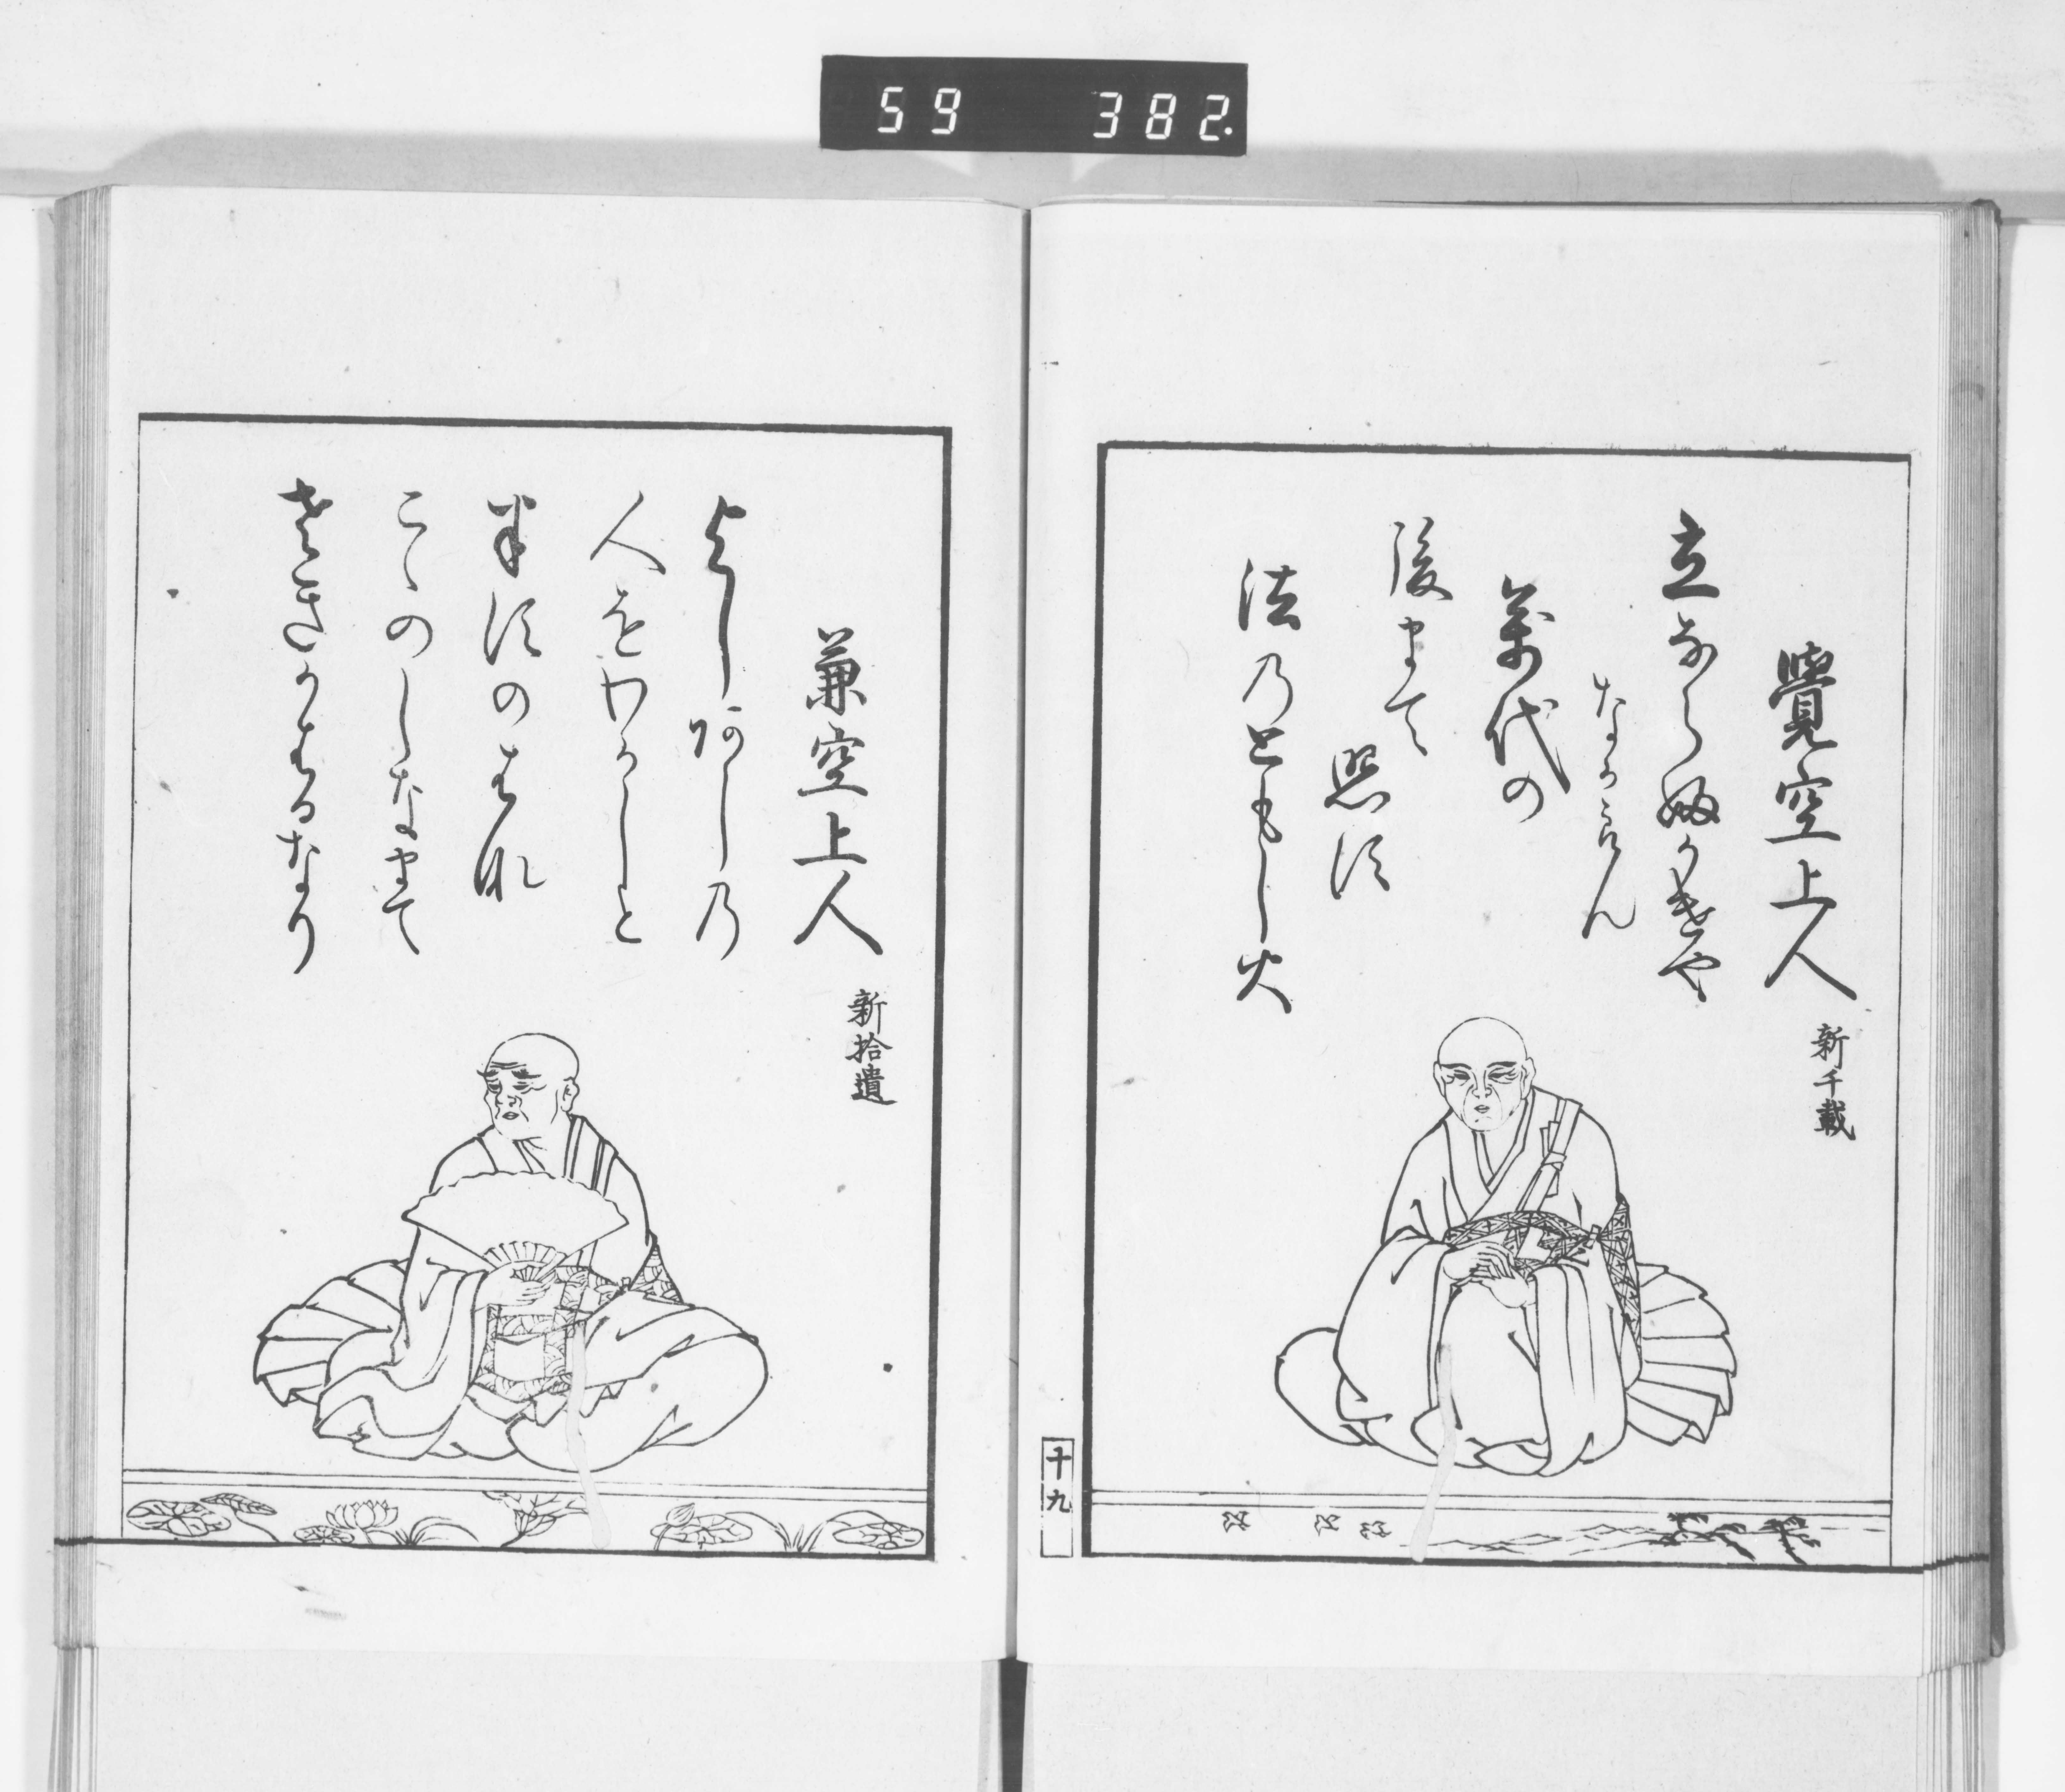 59 382.
覺空上人
新千載
立ならふかけや
なからん
萬代の
後まて
照す
法のともし火
十九
兼空上人
新拾遺
よしあしの
人をわかしと
はちすのはな
こゝのしなまて
さきかはるなり